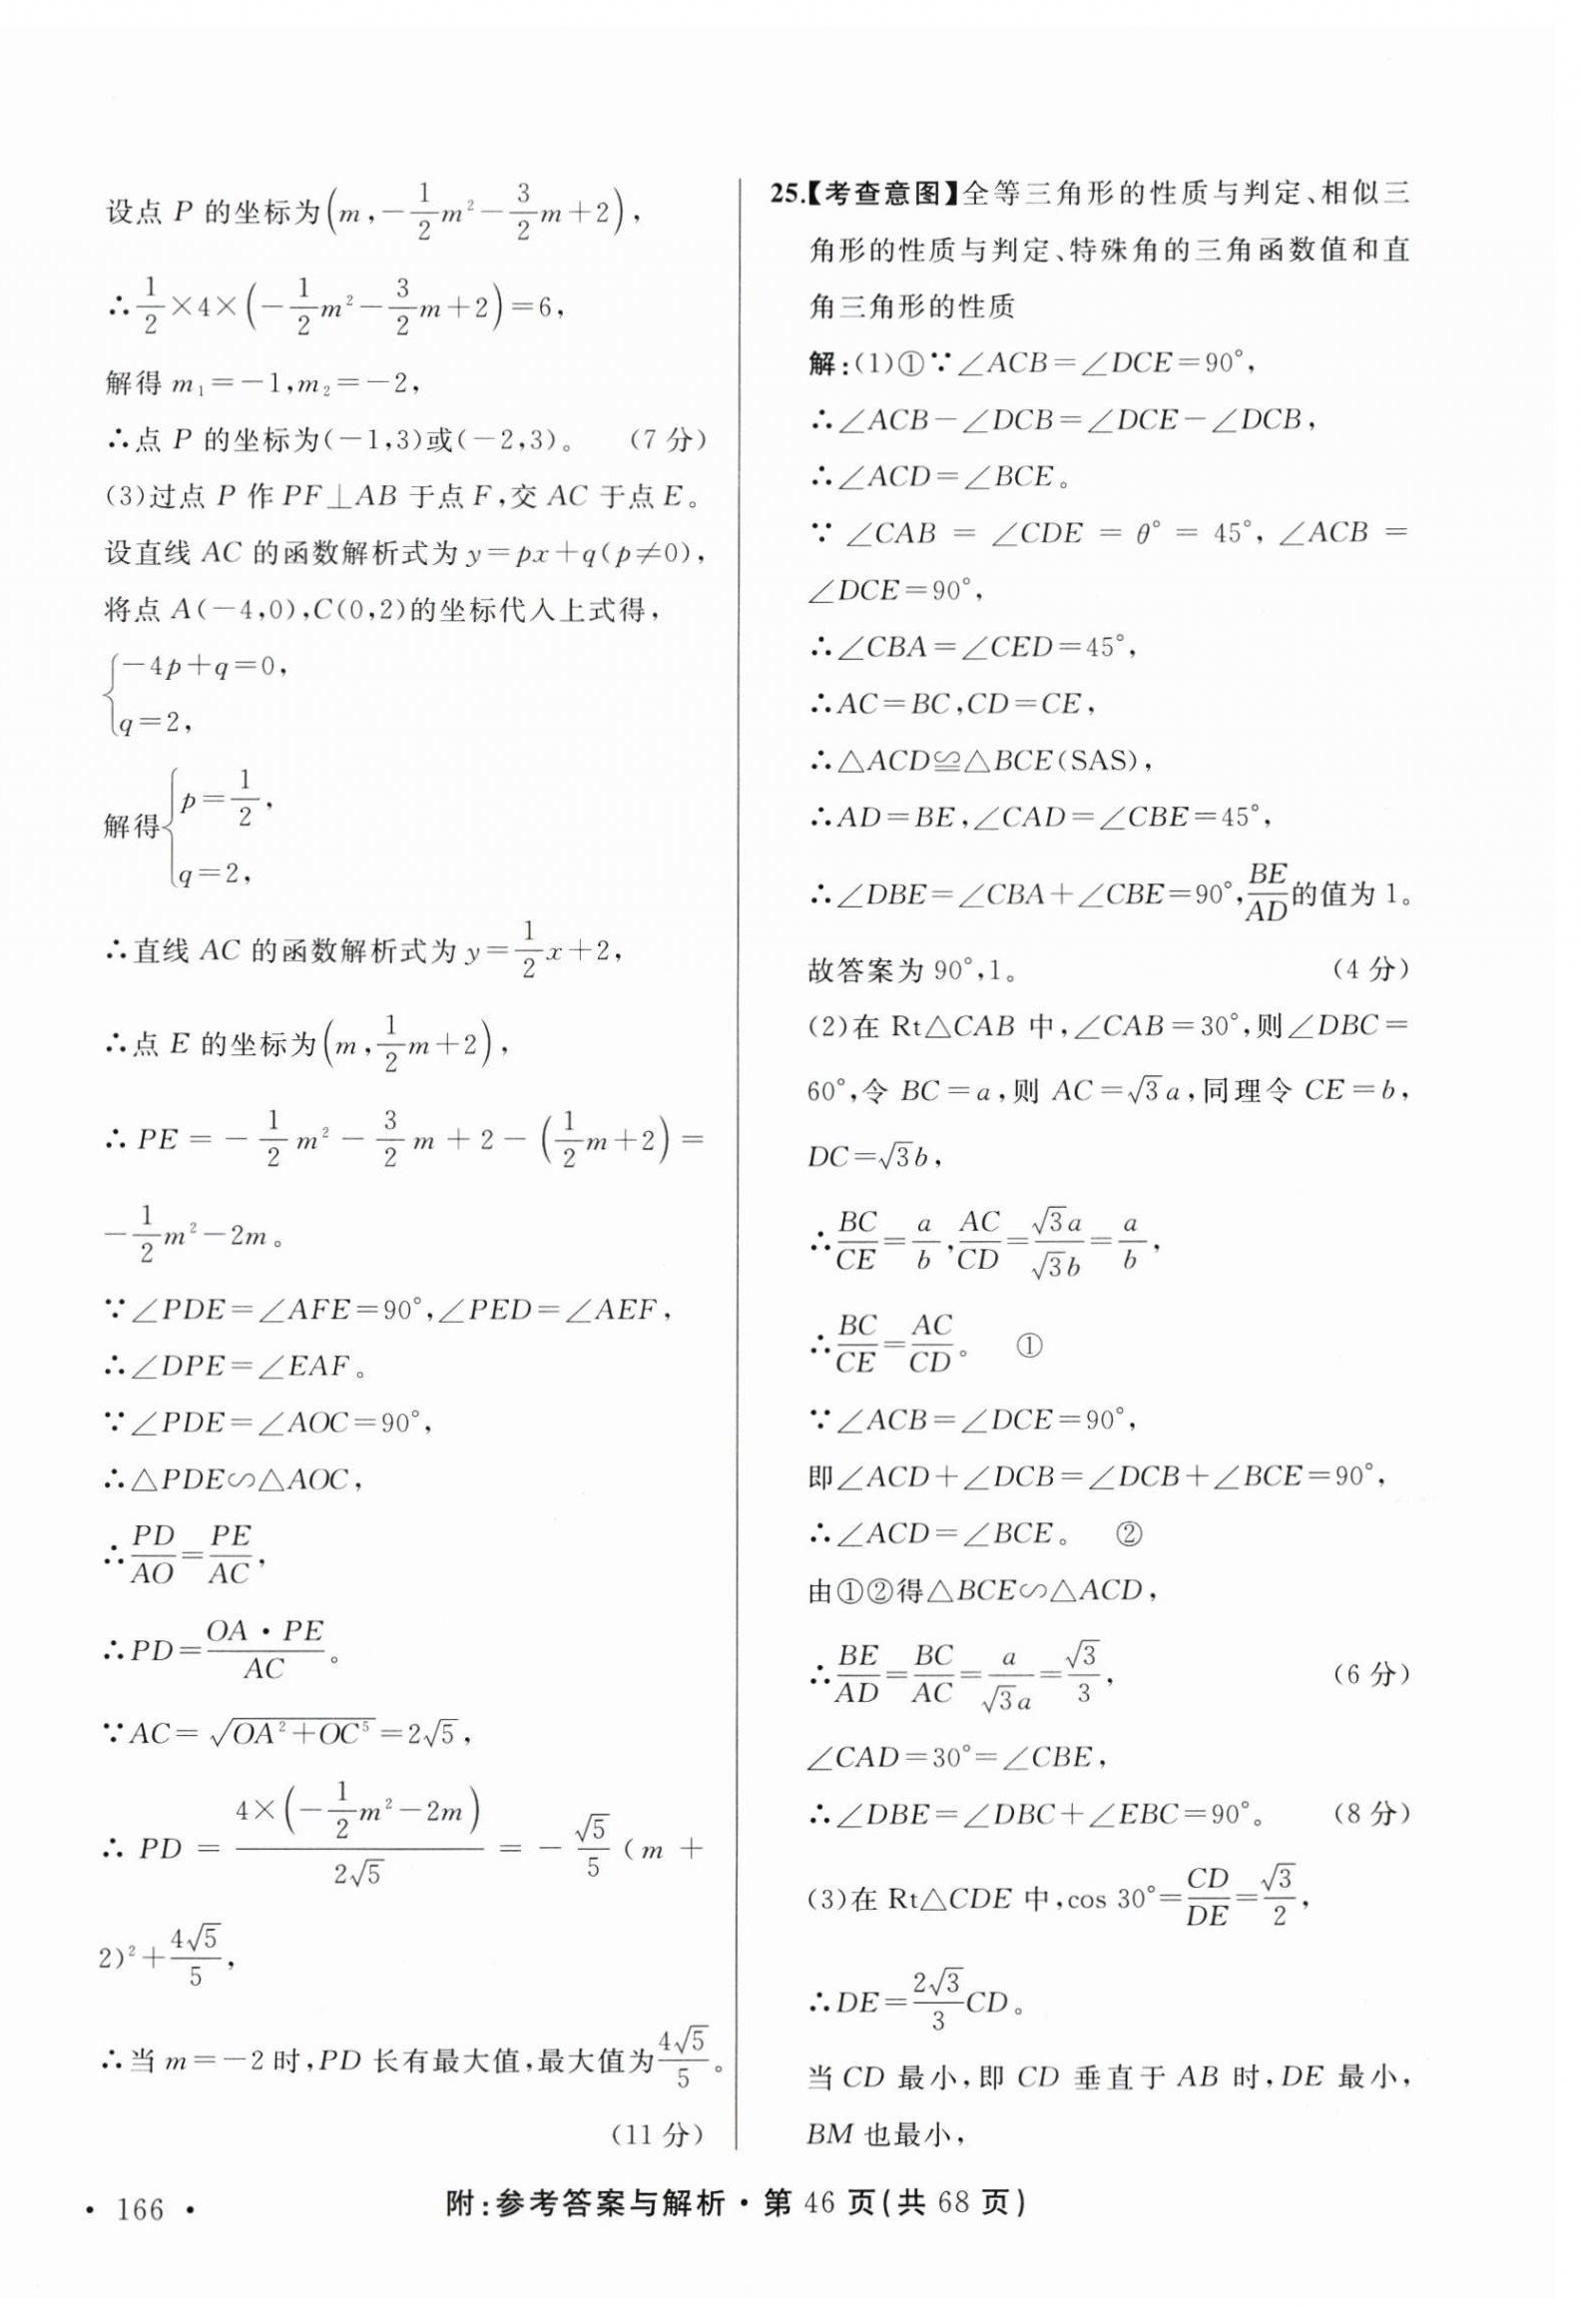 设点 P 的坐标为(m,-\frac{1}{2}m²-\frac{3}{2}m+2),
∴\frac{1}{2}×4×(-\frac{1}{2}m²-\frac{3}{2}m+2)=6,
解得 m₁=-1,m₂=-2,
∴点 P 的坐标为(-1,3)或(-2,3)。 (7 分)
(3)过点 P 作 PF⊥AB 于点 F,交 AC 于点 E。
设直线 AC 的函数解析式为 y=px+q(p≠0),
将点 A(-4,0),C(0,2)的坐标代入上式得,
{-4p+q=0,
q=2,
解得{p=\frac{1}{2},
q=2,
∴直线 AC 的函数解析式为 y=\frac{1}{2}x+2,
∴点 E 的坐标为(m,\frac{1}{2}m+2),
∴ PE = -\frac{1}{2}m² - \frac{3}{2}m + 2 - (\frac{1}{2}m+2) =
-\frac{1}{2}m²-2m。
∵∠PDE=∠AFE=90°,∠PED=∠AEF,
∴∠DPE=∠EAF。
∵∠PDE=∠AOC=90°,
∴△PDE∽△AOC,
∴\frac{PD}{AO}=\frac{PE}{AC},
∴PD=\frac{OA·PE}{AC}。
∵AC=√(OA²+OC⁵)=2√5,
∴ PD = \frac{4×(-\frac{1}{2}m²-2m)}{2√5} = -\frac{√5}{5}(m +
2)²+\frac{4√5}{5},
∴当 m=-2 时,PD 长有最大值,最大值为\frac{4√5}{5}。
(11 分)
25.【考查意图】全等三角形的性质与判定、相似三
角形的性质与判定、特殊角的三角函数值和直
角三角形的性质
解:(1)①∵∠ACB=∠DCE=90°,
∴∠ACB-∠DCB=∠DCE-∠DCB,
∴∠ACD=∠BCE。
∵ ∠CAB = ∠CDE = θ° = 45°, ∠ACB =
∠DCE=90°,
∴∠CBA=∠CED=45°,
∴AC=BC,CD=CE,
∴△ACD≌△BCE(SAS),
∴AD=BE,∠CAD=∠CBE=45°,
∴∠DBE=∠CBA+∠CBE=90°,\frac{BE}{AD}的值为 1。
故答案为 90°,1。 (4 分)
(2)在 Rt△CAB 中,∠CAB=30°,则∠DBC=
60°,令 BC=a,则 AC=√3a,同理令 CE=b,
DC=√3b,
∴\frac{BC}{CE}=\frac{a}{b},\frac{AC}{CD}=\frac{√3a}{√3b}=\frac{a}{b},
∴\frac{BC}{CE}=\frac{AC}{CD}。 ①
∵∠ACB=∠DCE=90°,
即∠ACD+∠DCB=∠DCB+∠BCE=90°,
∴∠ACD=∠BCE。 ②
由①②得△BCE∽△ACD,
∴\frac{BE}{AD}=\frac{BC}{AC}=\frac{a}{√3a}=\frac{√3}{3}, (6 分)
∠CAD=30°=∠CBE,
∴∠DBE=∠DBC+∠EBC=90°。 (8 分)
(3)在 Rt△CDE 中,cos 30°=\frac{CD}{DE}=\frac{√3}{2},
∴DE=\frac{2√3}{3}CD。
当 CD 最小,即 CD 垂直于 AB 时,DE 最小,
BM 也最小,
· 166 · 附:参考答案与解析·第 46 页(共 68 页)